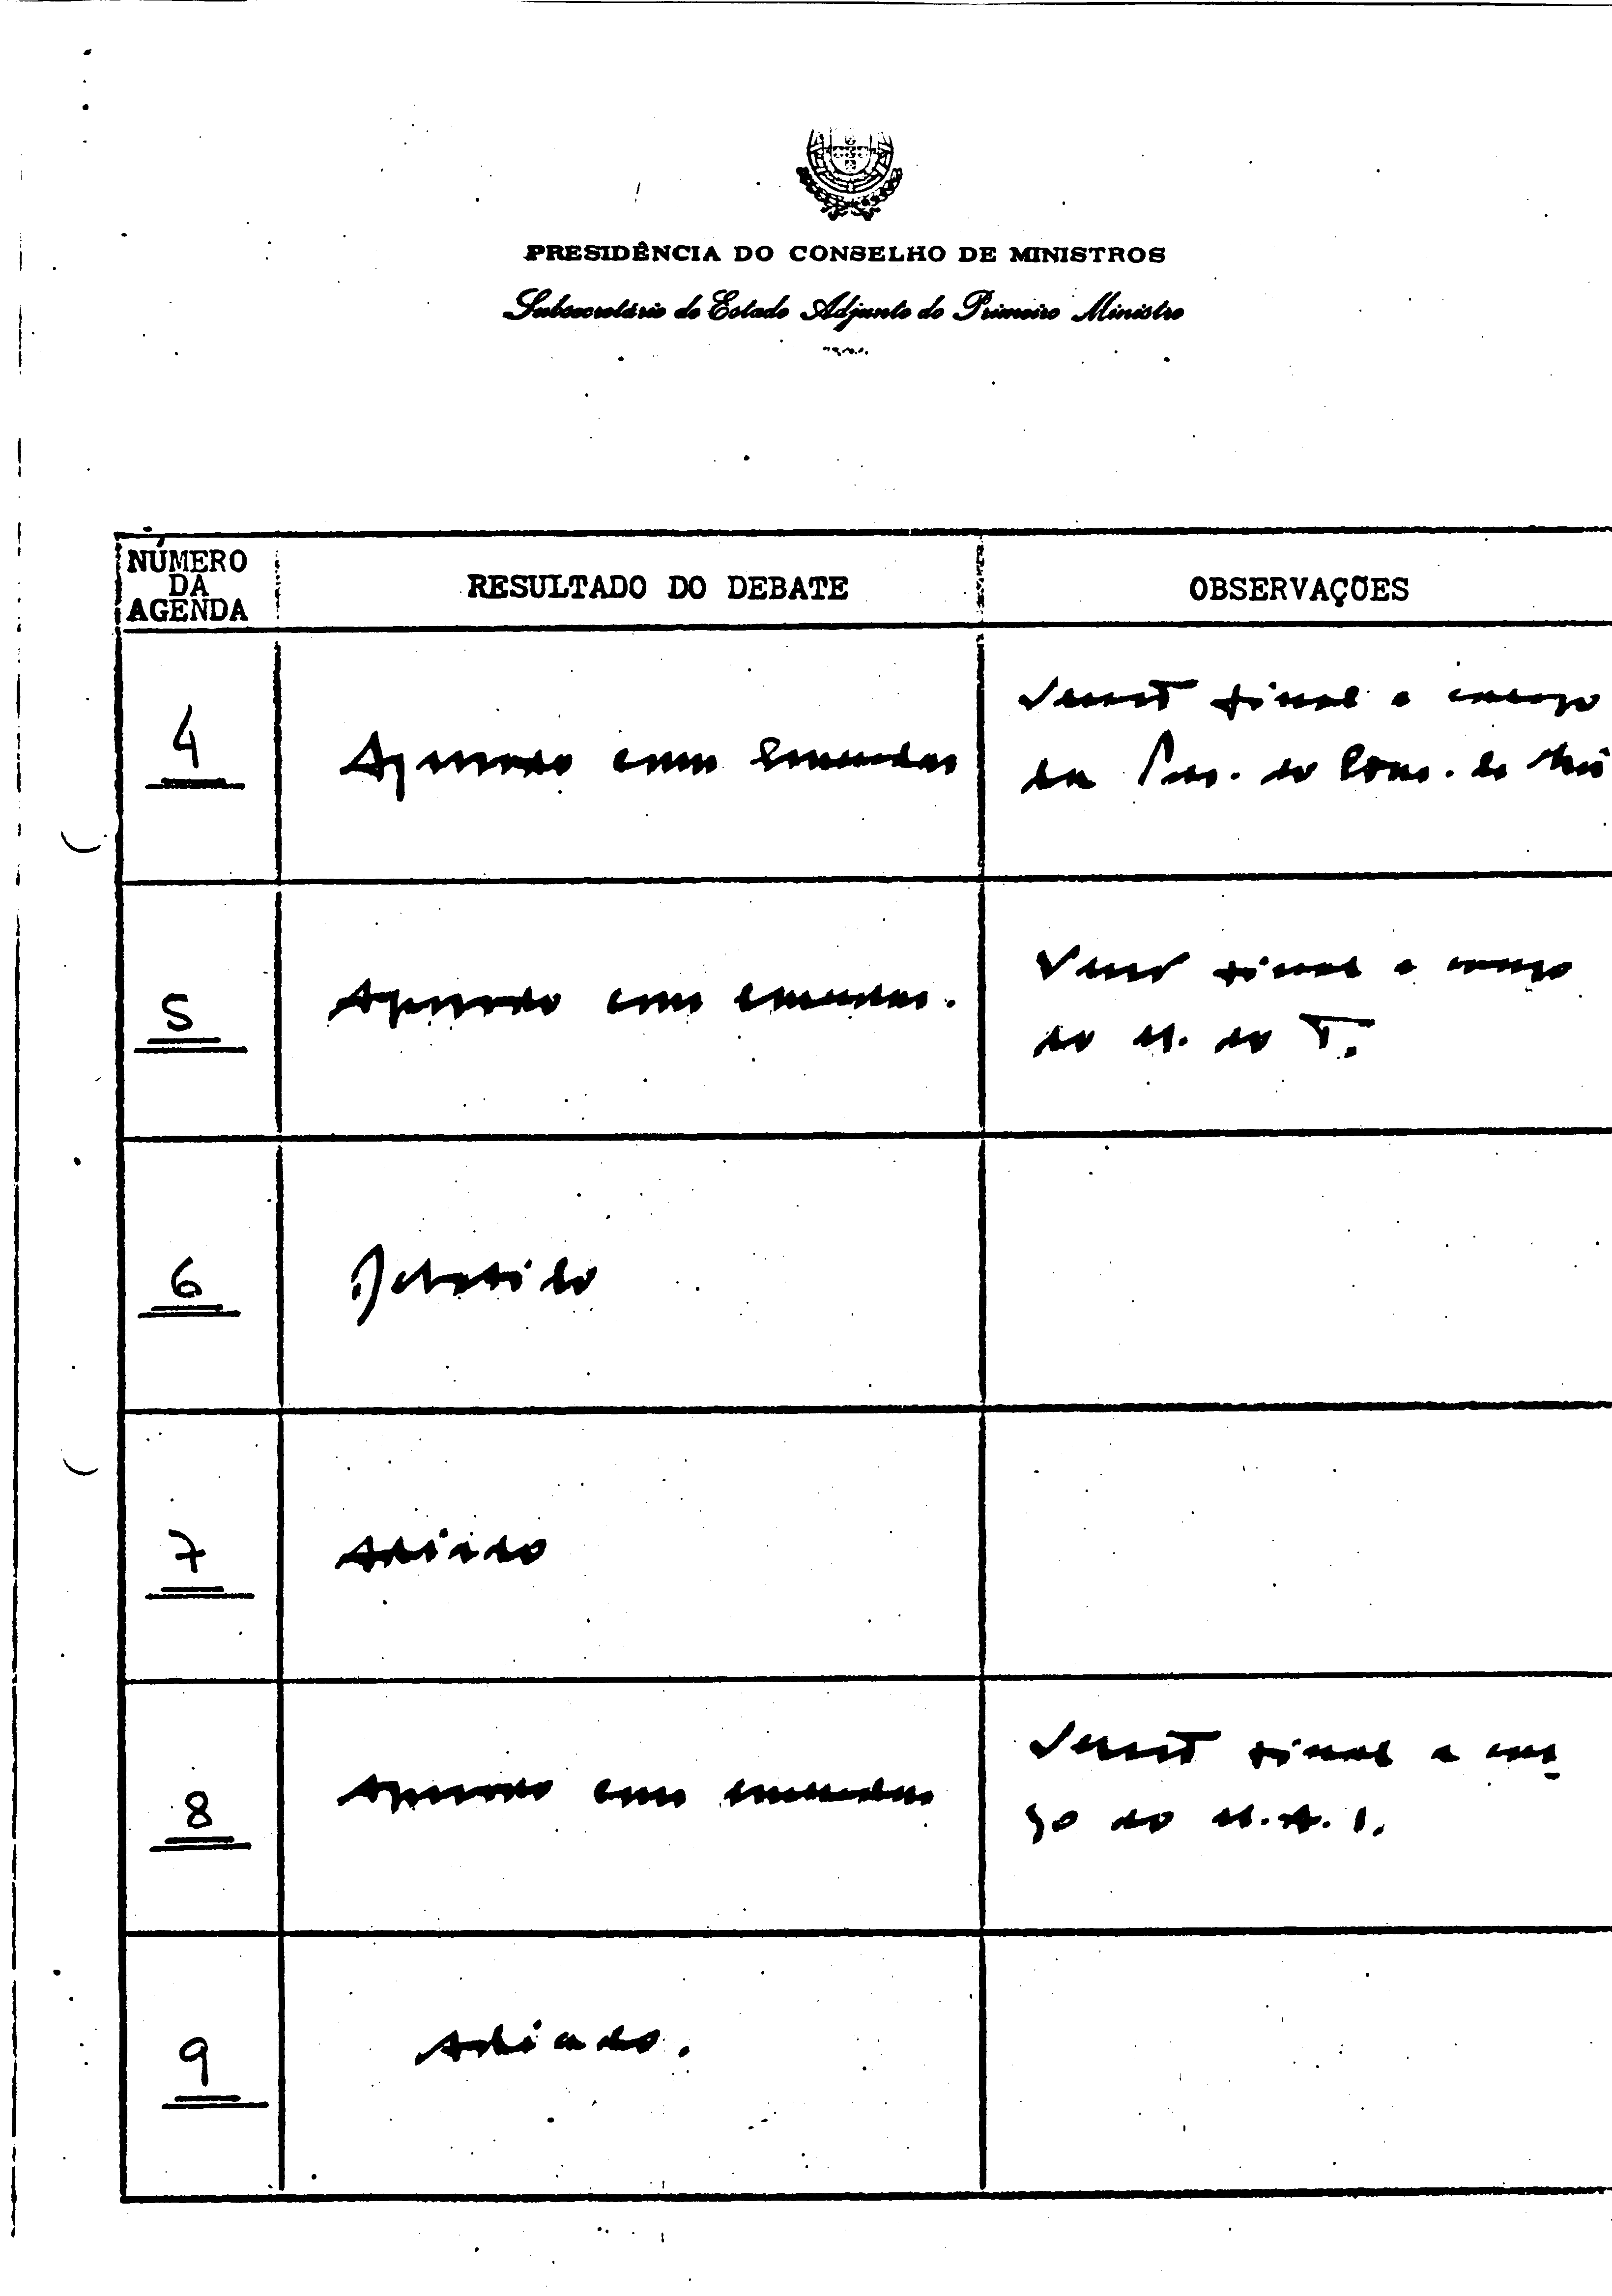 PRESIDÊNCIA DO CONSELHO DE MINISTROS
Subsecretário de Estado Adjunto do Primeiro Ministro
NÚMERO DA AGENDA
RESULTADO DO DEBATE
OBSERVAÇÕES
4
Aprovado com Emendas
Versão final a cargo
da Pres. do Cons. de Mi
5
Aprovado com emendas.
Versão final a cargo
do M. do T.
6
Debatido
7
Adiado
8
Aprovado com emendas
Versão final a car
go do M.A.I.
9
Adiado.